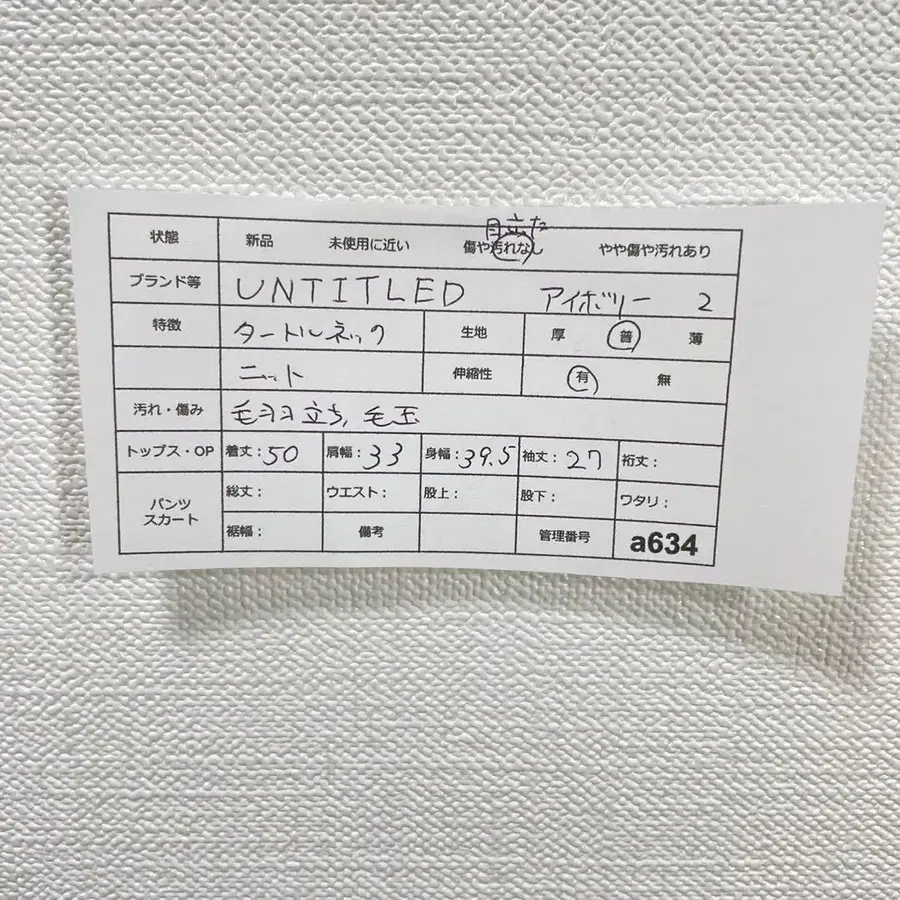 目立た
状態 新品 未使用に近い 傷や汚れなし やや傷や汚れあり
ブランド等 UNTITLED アイボリー 2
特徴 タートルネック 生地 厚 普 薄
ニット 伸縮性 有 無
汚れ・傷み 毛羽立ち, 毛玉
トップス・OP 着丈：50 肩幅：33 身幅：39.5 袖丈：27 裄丈：
パンツ スカート 総丈： ウエスト： 股上： 股下： ワタリ：
裾幅： 備考 管理番号 a634